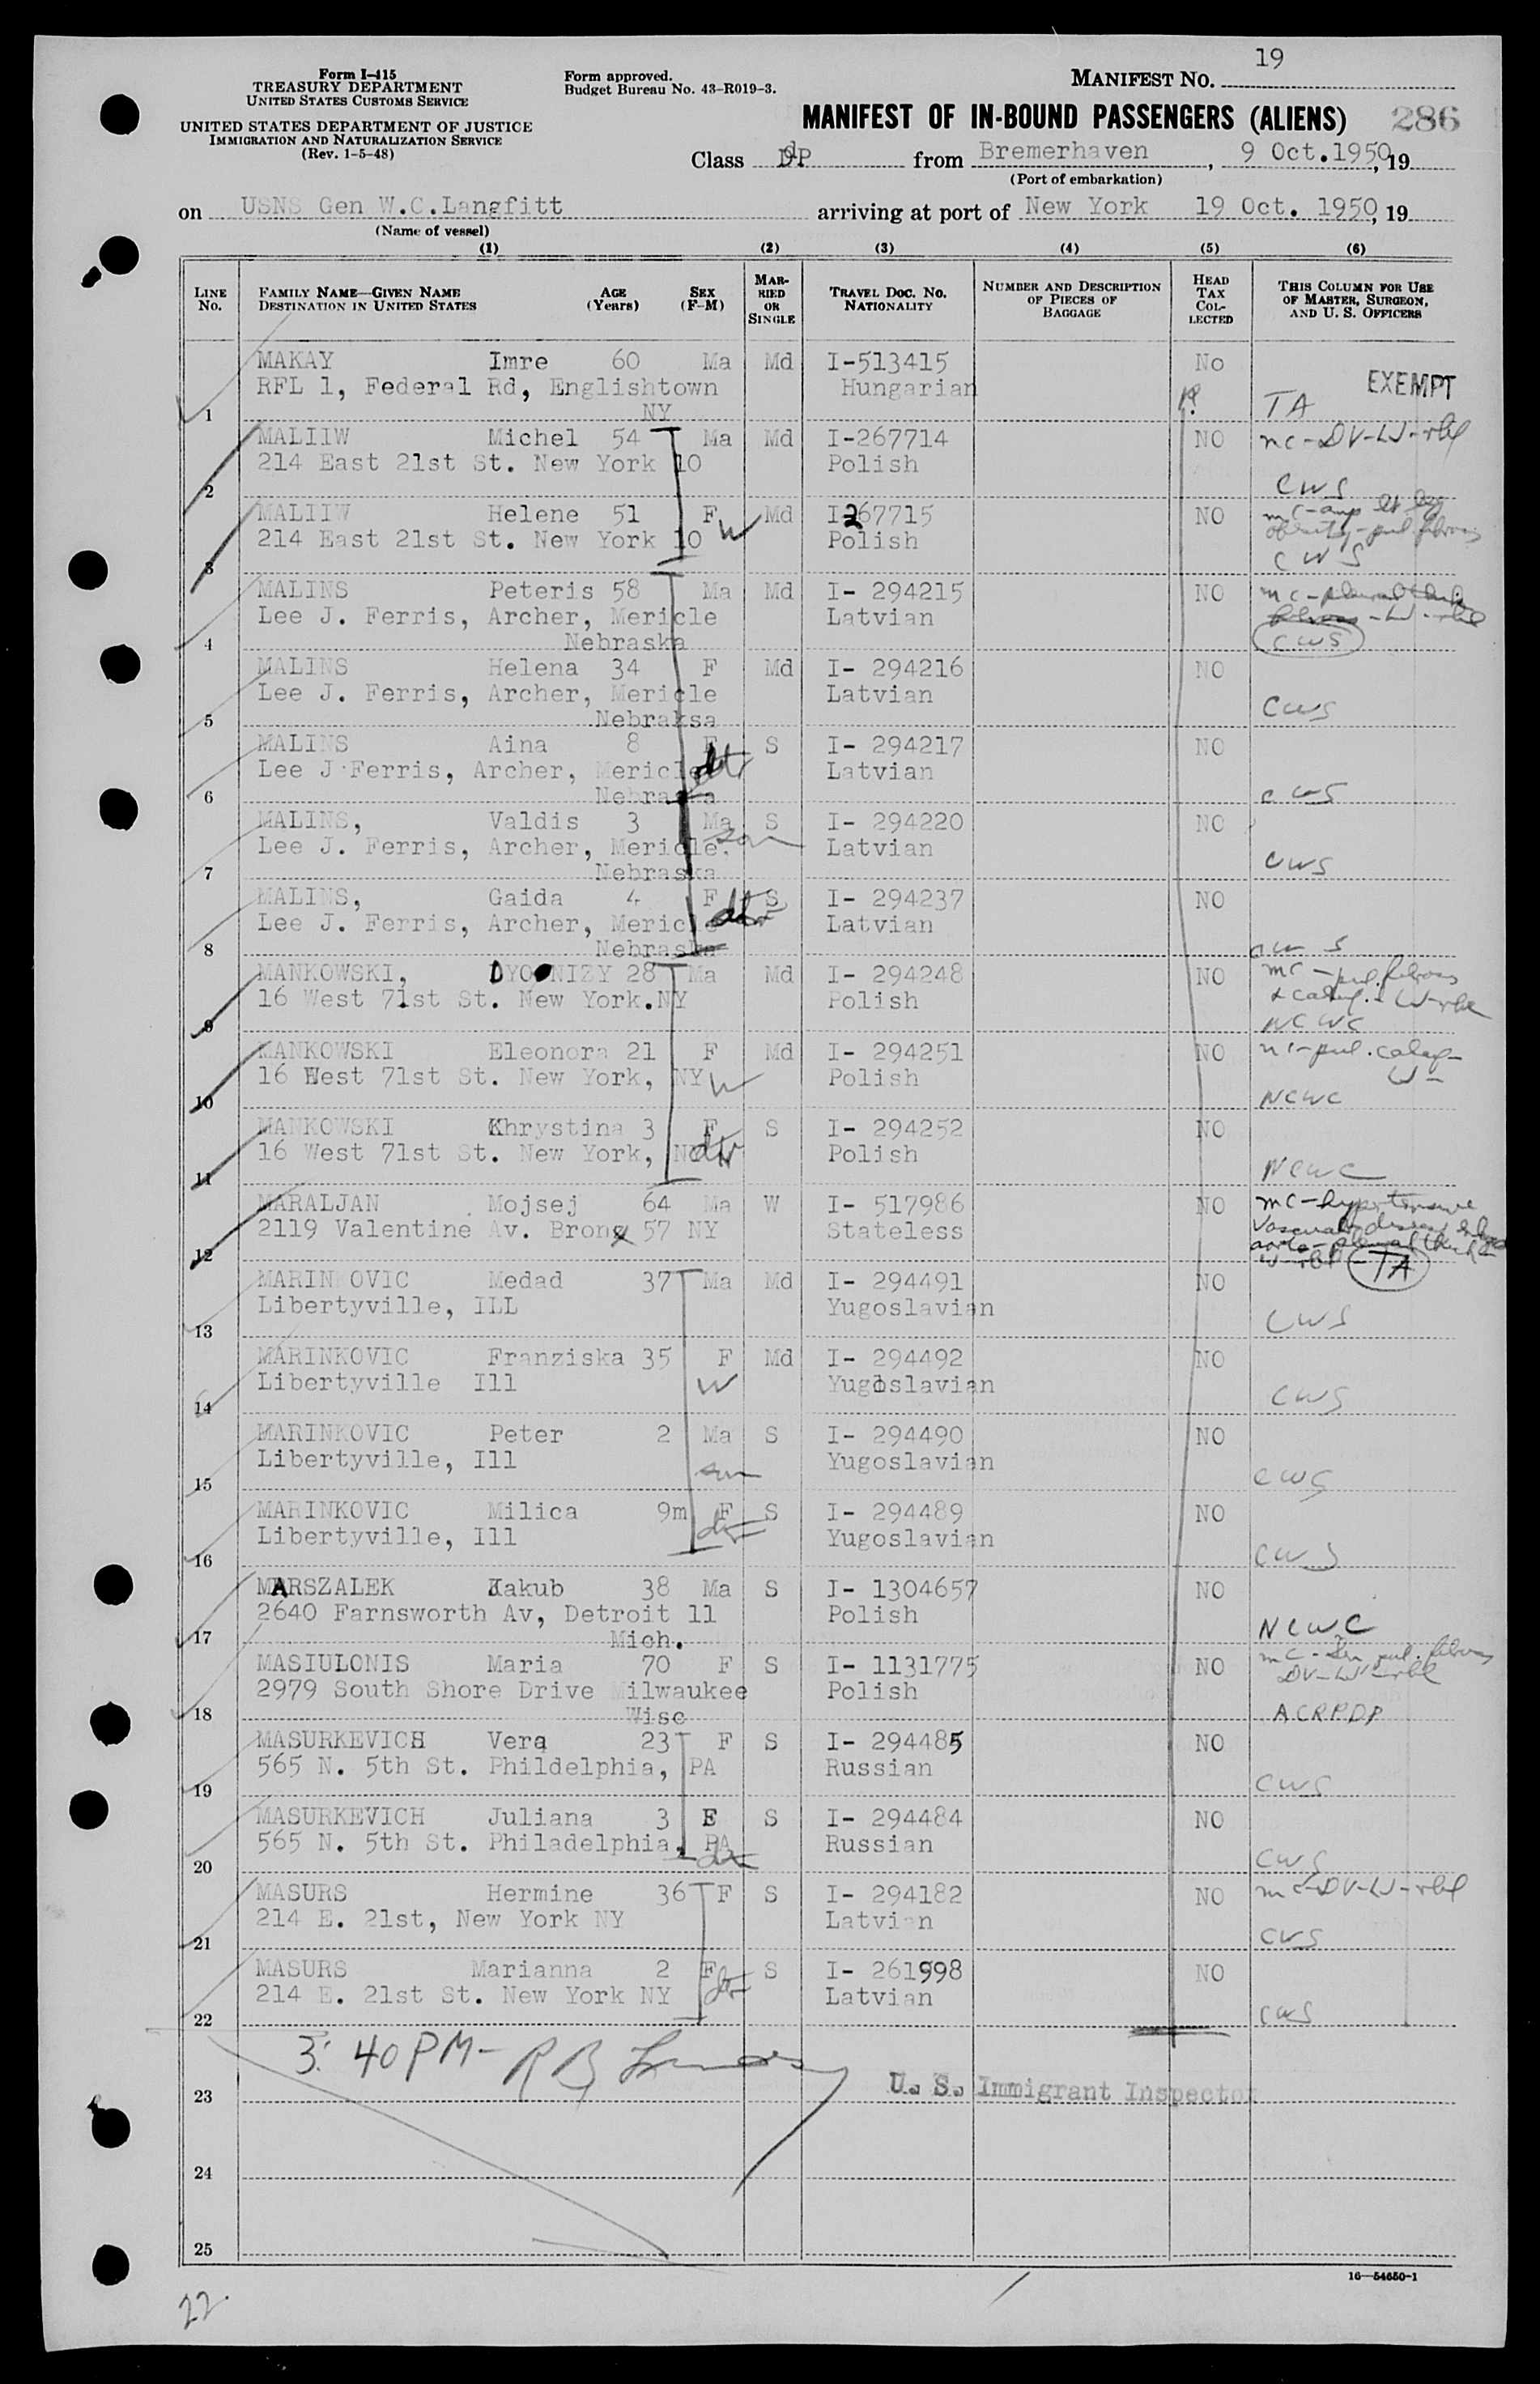 19
Form I-415
TREASURY DEPARTMENT
UNITED STATES CUSTOMS SERVICE
UNITED STATES DEPARTMENT OF JUSTICE
IMMIGRATION AND NATURALIZATION SERVICE
(Rev. 1-5-48)
Form approved.
Budget Bureau No. 43-R019-3.
MANIFEST NO.
MANIFEST OF IN-BOUND PASSENGERS (ALIENS) 286
Class DP from Bremerhaven, 9 Oct.1950, 19
(Port of embarkation)
on USNS Gen W.C.Langfitt arriving at port of New York 19 Oct. 1950, 19
(Name of vessel)
(1) (2) (3) (4) (5) (6)
LINE No. FAMILY NAME—GIVEN NAME DESTINATION IN UNITED STATES AGE (Years) SEX (F-M) MARRIED OR SINGLE TRAVEL DOC. NO. NATIONALITY NUMBER AND DESCRIPTION OF PIECES OF BAGGAGE HEAD TAX COLLECTED THIS COLUMN FOR USE OF MASTER, SURGEON, AND U. S. OFFICERS
MAKAY Imre 60 Ma Md I-513415 No
RFL 1, Federal Rd, Englishtown Hungarian EXEMPT
1 NY TA
MALIIW Michel 54 Ma Md I-267714 NO mc-DV-LV-rbl
214 East 21st St. New York 10 Polish
2 CWS
MALIIW Helene 51 F W Md I267715 NO mc-amp lt leg
214 East 21st St. New York 10 Polish
3 CWS
MALINS Peteris 58 Ma Md I- 294215 NO mc-
Lee J. Ferris, Archer, Mericle Latvian
4 Nebraska CWS
MALINS Helena 34 F Md I- 294216 NO
Lee J. Ferris, Archer, Mericle Latvian
5 Nebraksa CWS
MALINS Aina 8 F dtr S I- 294217 NO
Lee J Ferris, Archer, Mericle Latvian
6 Nebraska CWS
MALINS, Valdis 3 Ma son S I- 294220 NO
Lee J. Ferris, Archer, Mericle. Latvian
7 Nebraska CWS
MALINS, Gaida 4 F dtr S I- 294237 NO
Lee J. Ferris, Archer, Mericle Latvian
8 Nebraska CWS
MANKOWSKI, DYONIZY 28 Ma Md I- 294248 NO mc-pul. fibrosis
16 West 71st St. New York.NY Polish
9 NCWC
MANKOWSKI Eleonora 21 F W Md I- 294251 NO
16 West 71st St. New York, NY Polish
10 NCWC
MANKOWSKI Khrystina 3 F dtr S I- 294252 NO
16 West 71st St. New York, NY Polish
11 NCWC
MARALJAN Mojsej 64 Ma W I- 517986 NO mc-hypertensive
2119 Valentine Av. Bronx 57 NY Stateless
12 TA
MARINKOVIC Medad 37 Ma Md I- 294491 NO
Libertyville, ILL Yugoslavian
13 CWS
MARINKOVIC Franziska 35 F W Md I- 294492 NO
Libertyville Ill Yugoslavian
14 CWS
MARINKOVIC Peter 2 Ma son S I- 294490 NO
Libertyville, Ill Yugoslavian
15 CWS
MARINKOVIC Milica 9m F dtr S I- 294489 NO
Libertyville, Ill Yugoslavian
16 CWS
MARSZALEK Jakub 38 Ma S I- 1304657 NO
2640 Farnsworth Av, Detroit 11 Polish
17 Mich. NCWC
MASIULONIS Maria 70 F S I- 1131775 NO
2979 South Shore Drive Milwaukee Polish
18 Wisc ACRPDP
MASURKEVICH Vera 23 F S I- 294485 NO
565 N. 5th St. Phildelphia, PA Russian
19 CWS
MASURKEVICH Juliana 3 F dtr S I- 294484 NO
565 N. 5th St. Philadelphia, PA Russian
20 CWS
MASURS Hermine 36 F S I- 294182 NO mc-DV-LV-rbl
214 E. 21st, New York NY Latvian
21 CWS
MASURS Marianna 2 F dtr S I- 261998 NO
214 E. 21st St. New York NY Latvian
22 CWS
3:40 PM-
23 U. S. Immigrant Inspector
24
25
16—54650-1
22